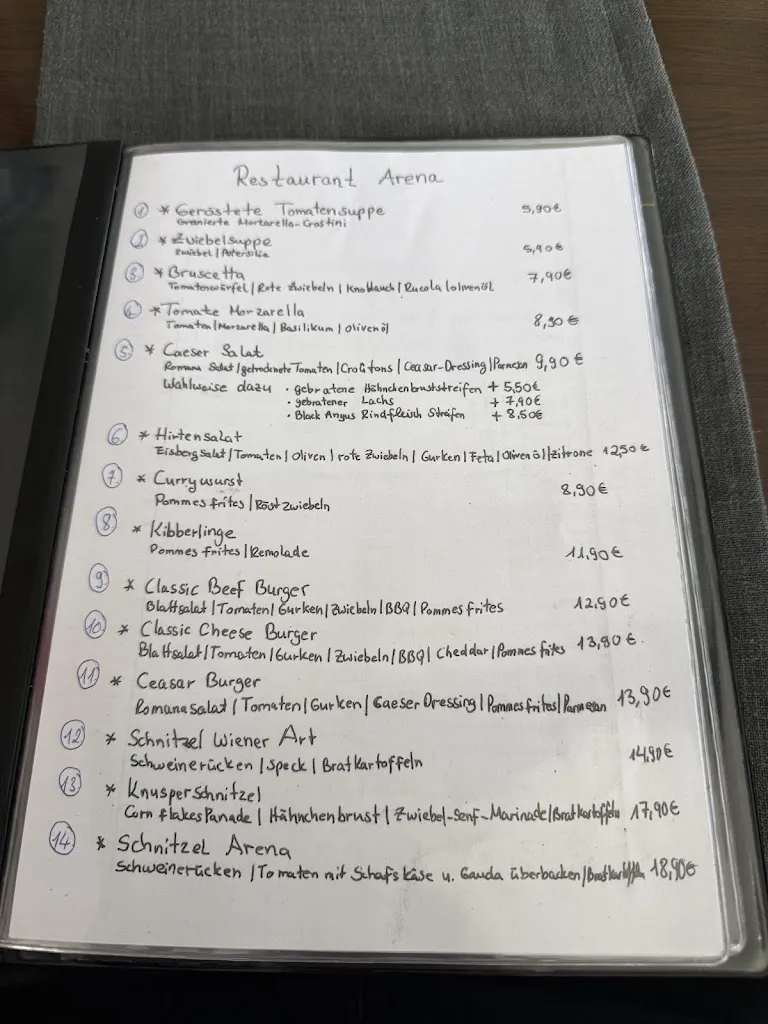 Restaurant Arena
1. * Geröstete Tomatensuppe 5,90€
Granierte Morzarella-Crostini
2. * Zwiebelsuppe 5,90€
Zwiebel | Petersilie
3. * Bruscetta 7,90€
Tomatenwürfel | Rote Zwiebeln | Knoblauch | Rucola | olivenöl
4. * Tomate Morzarella 8,90€
Tomaten | Morzarella | Basilikum | Olivenöl
5. * Caeser Salat
Romana Salat | getrocknete Tomaten | Croûtons | Ceasar-Dressing | Parmesan 9,90€
Wahlweise dazu • gebratene Hähnchenbruststreifen + 5,50€
• gebratener Lachs + 7,90€
• Black Angus Rindfleisch Streifen + 8,50€
6. * Hirtensalat
Eisbergsalat | Tomaten | Oliven | rote Zwiebeln | Gurken | Feta | Olivenöl | zitrone 12,50€
7. * Currywurst 8,90€
Pommes frites | Röstzwiebeln
8. * Kibberlinge
Pommes frites | Remolade 11,90€
9. * Classic Beef Burger
Blattsalat | Tomaten | Gurken | Zwiebeln | BBQ | Pommes frites 12,90€
10. * Classic Cheese Burger
Blattsalat | Tomaten | Gurken | Zwiebeln | BBQ | Cheddar | Pommes frites 13,90€.
11. * Ceasar Burger
Romanasalat | Tomaten | Gurken | Caeser Dressing | Pommes frites | Parmesan 13,90€
12. * Schnitzel Wiener Art
Schweinerücken | Speck | Bratkartoffeln 14,90€
13. * Knusperschnitzel
Corn flakes Panade | Hähnchenbrust | Zwiebel-Senf-Marinade | Bratkartoffeln 17,90€
14. * Schnitzel Arena
Schweinerücken | Tomaten mit Schafskäse u. Gauda überbacken | Bratkartoffeln 18,90€